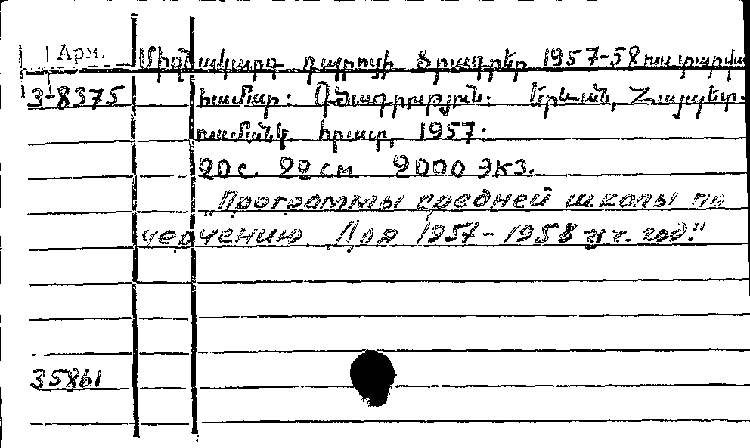 Арм.
Միջնակարգ դպրոցի ծրագրեր 1957-58 ուս. տարվա
3-8375 համար: Գծագրություն: Երևան, Հայպետ-
ուսմանկ. հրատ., 1957:
20 с. 22 см 2000 экз.
„Программы средней школы по
черчению. Для 1957-1958 уч. год."
35861